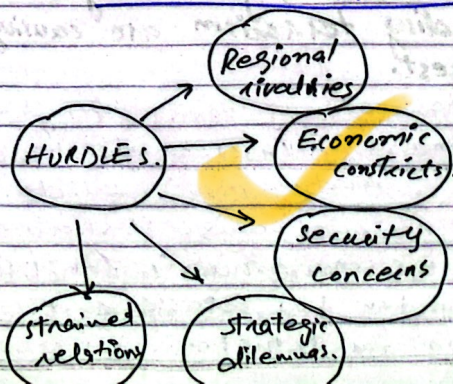 Regional
rivalries
HURDLES.
Economic
constricts
security
concerns
strategic
dilemmas.
strained
relations